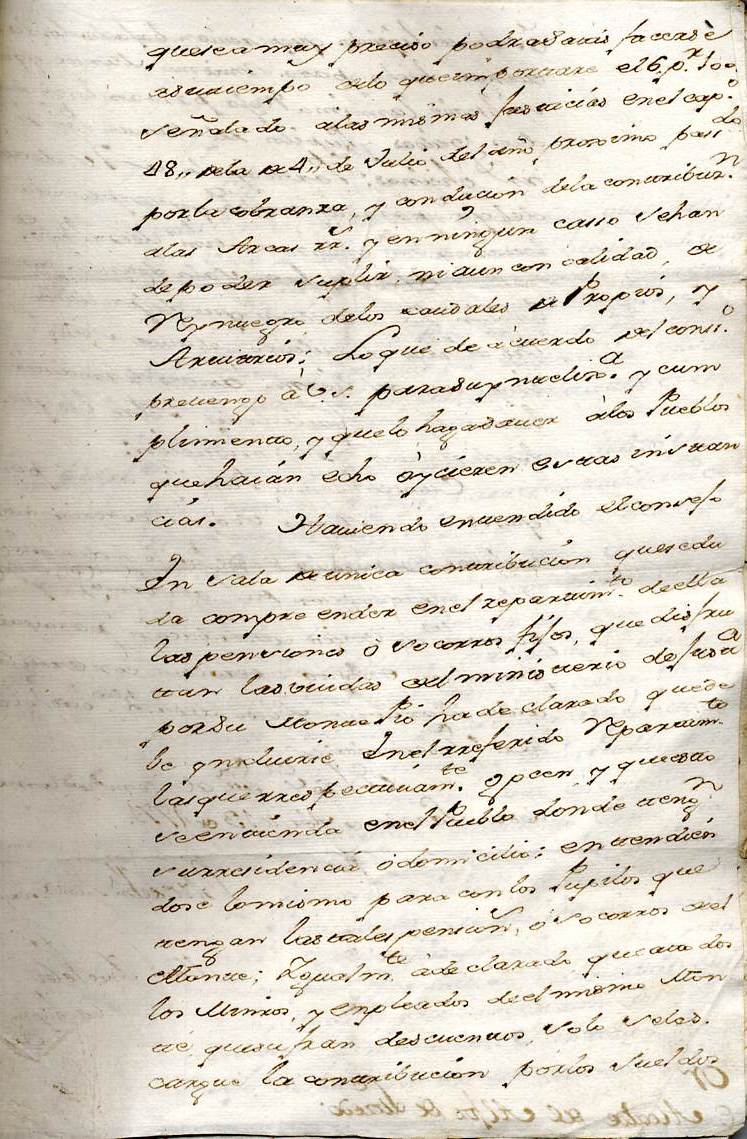 que sea muy preciso podra satisfacerse
a su tiempo de lo que importare el 6 p.r 100
señalado a las mismas Justicias en el cap.o
48,, de la de 4,, de Julio del año proximo pasa.do
por la cobranza, y conducion de la contribuz.n
a las Arcas rr.s y en ningun casso se han
de poder suplir, ni aun con calidad, de
Reyntegro de los caudales de Propios, y
Arvitrios; Lo que de acuerdo del cons.o
prevengo à V.S. para su ynteli.a y cum
plimento, y que lo haga saver à los Pueblos
que haian echo ò ycieren estas instan
cias. Haviendo entendido el consejo
En sala de unica contribucion que se du
da comprender en el repartim.to de ella
las pensiones ò socorros fijos, que disfru
tan las viudas del ministerio de Jus.a
por su Monte Pio ha declarado que de
be yncluirse En el rreferido Repartim.to
las que rrespectivam.te gocen y que esto
se entienda en el Pueblo donde teng.n
su rresidencia ò domicilio; entendien
dose lo mismo para con los Pupilos que
tengan las tales pension, ò socorros del
Monte; Igualm.te à declarado que a todos
los Minros, y enpleados de el mismo Mon
te que sufran descuentos, solo se les
cargue la contribucion por los sueldos